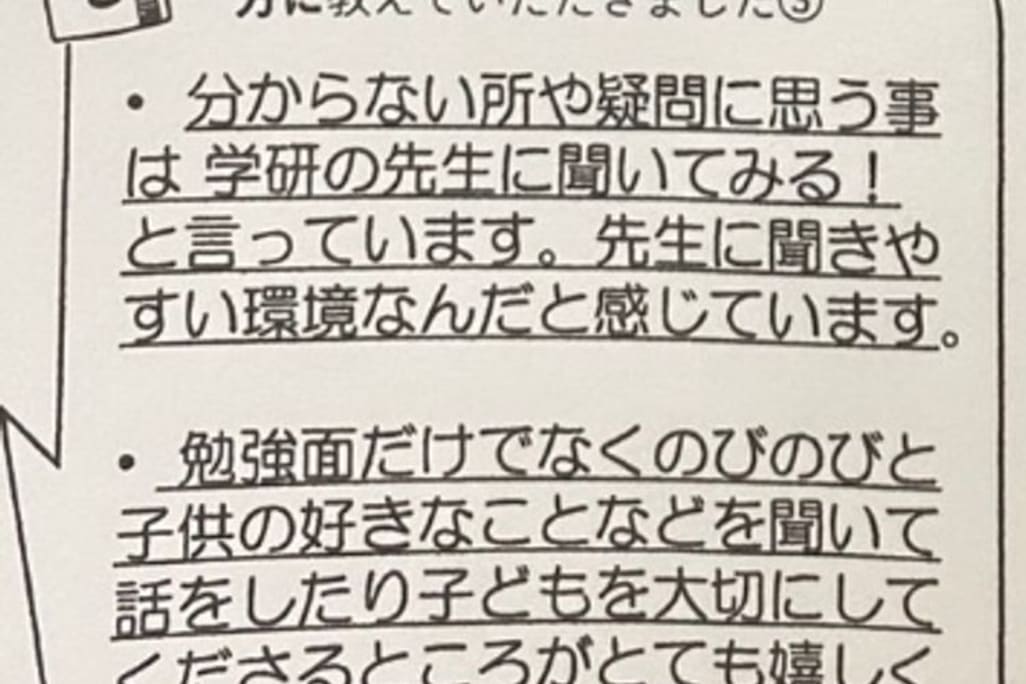 方に教えていただきました③
・分からない所や疑問に思う事
は 学研の先生に聞いてみる！
と言っています。先生に聞きや
すい環境なんだと感じています。
・勉強面だけでなくのびのびと
子供の好きなことなどを聞いて
話をしたり子どもを大切にして
くださるところがとても嬉しく